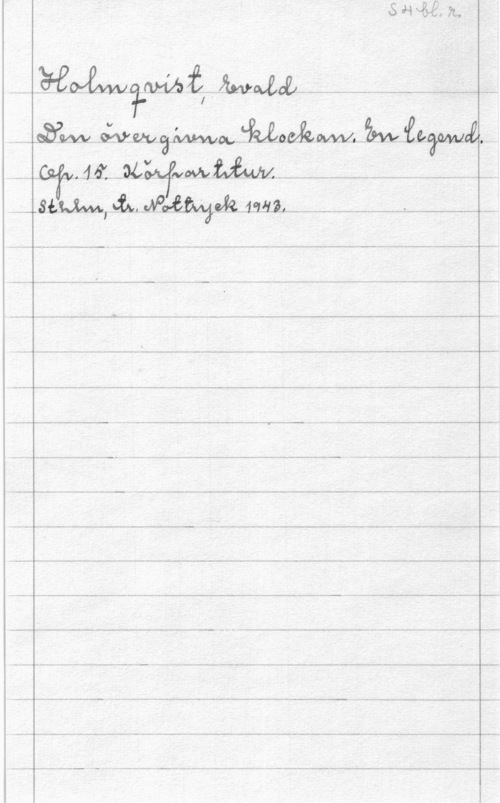 S H bl. r.
Holmqvist, Evald
Den övergivna klockan. En legend.
Op. 15. Körpartitur.
Sthlm, tr. Nottryck 1943.